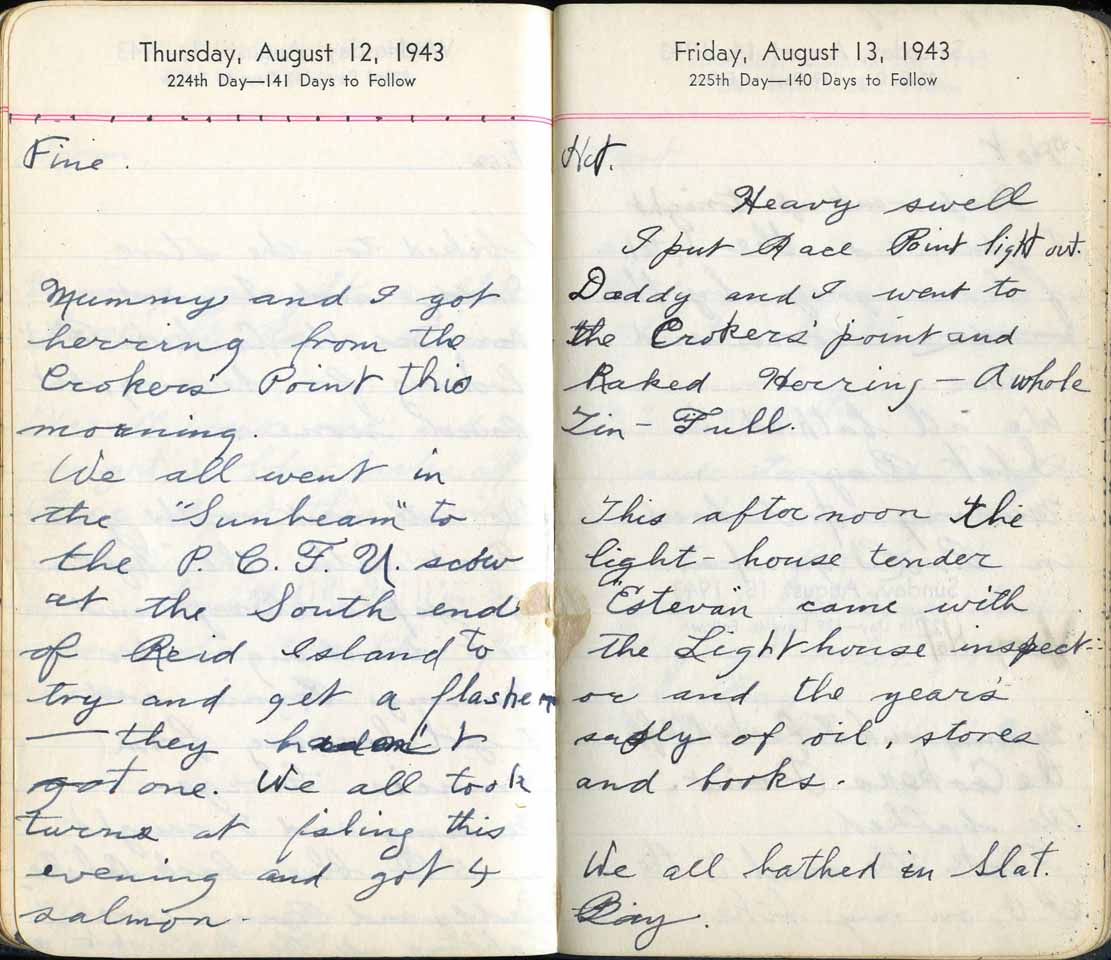 Thursday, August 12, 1943
224th Day—141 Days to Follow
Fine.
Mummy and I got
herring from the
Crokers Point this
morning.
We all went in
the "Sunbeam" to
the P. C. F. U. scow
at the South end
of Reid Island to
try and get a flasher
— they hadn't
got one. We all took
turns at fishing this
evening and got 4
salmon.
Friday, August 13, 1943
225th Day—140 Days to Follow
Hot.
Heavy swell
I put Race Point light out.
Daddy and I went to
the Crokers' point and
Raked Herring — A whole
Tin - Full.
This afternoon the
light-house tender
"Estevan came with
the Lighthouse inspect-
or and the year's
suply of oil, stores
and books.
We all bathed in Slat.
Bay.